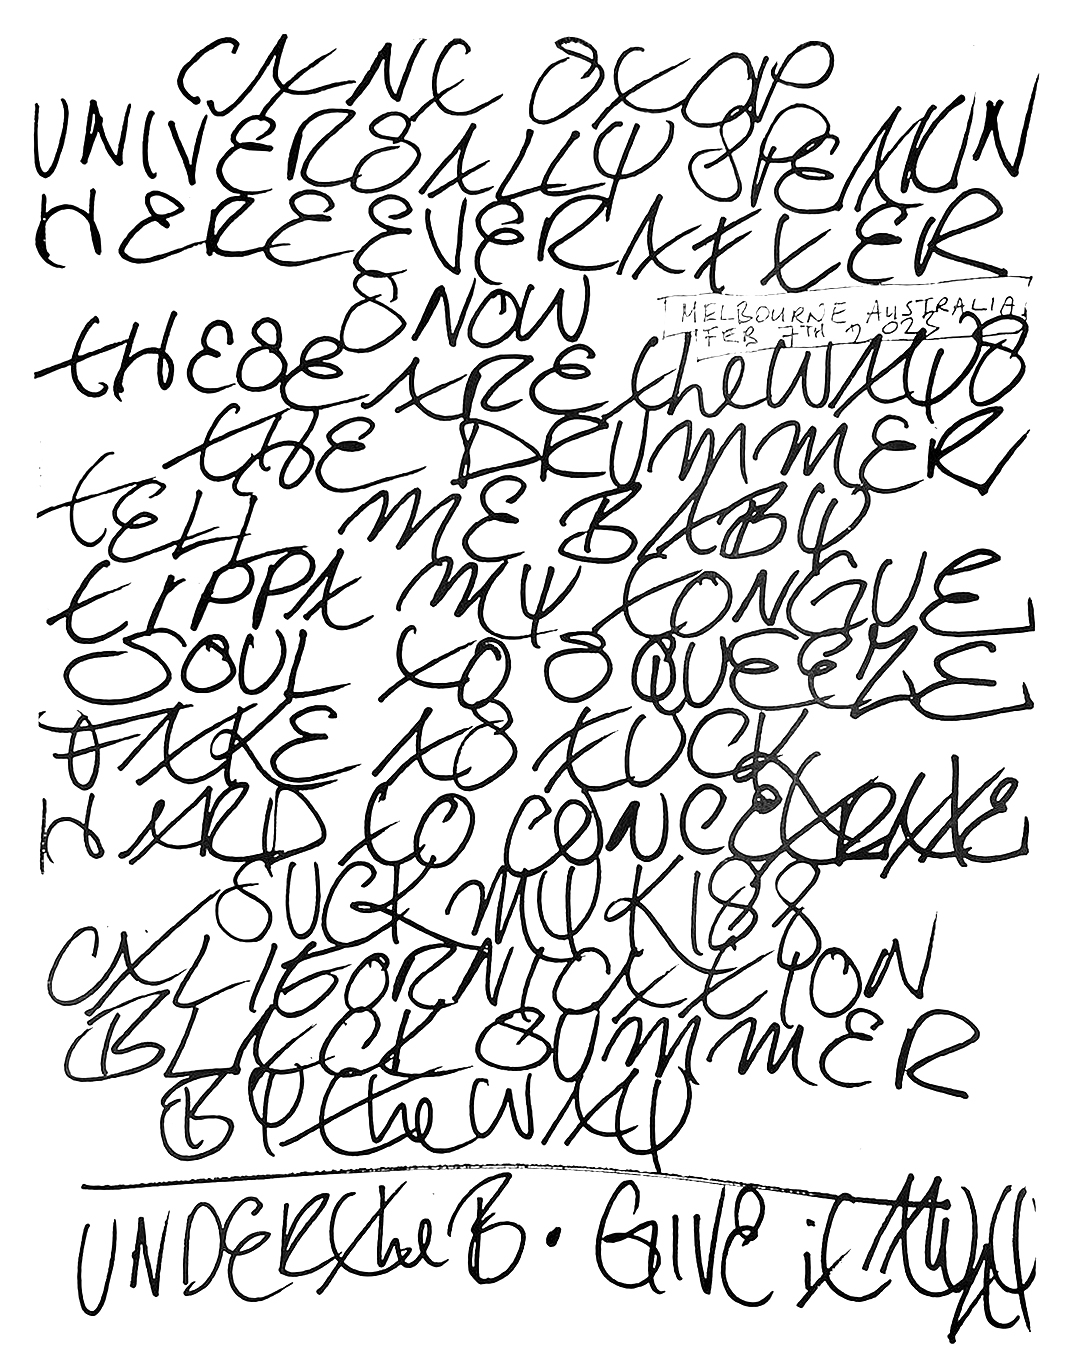 CANT STOP
UNIVERSALLY SPEAKIN
HERE EVER AFTER
SNOW
MELBOURNE AUSTRALIA
FEB 7TH 2023
THESE ARE the WAYS
THE DRUMMER
TELL ME BABY
TIPPA MY TONGUE
SOUL TO SQUEEZE
FAKE AS FUCK
HARD TO CONCENTRATE
SUCK MY KISS
CALIFORNICATION
BLACK SUMMER
BY the WAY
UNDER the B · GIVE it AWAY